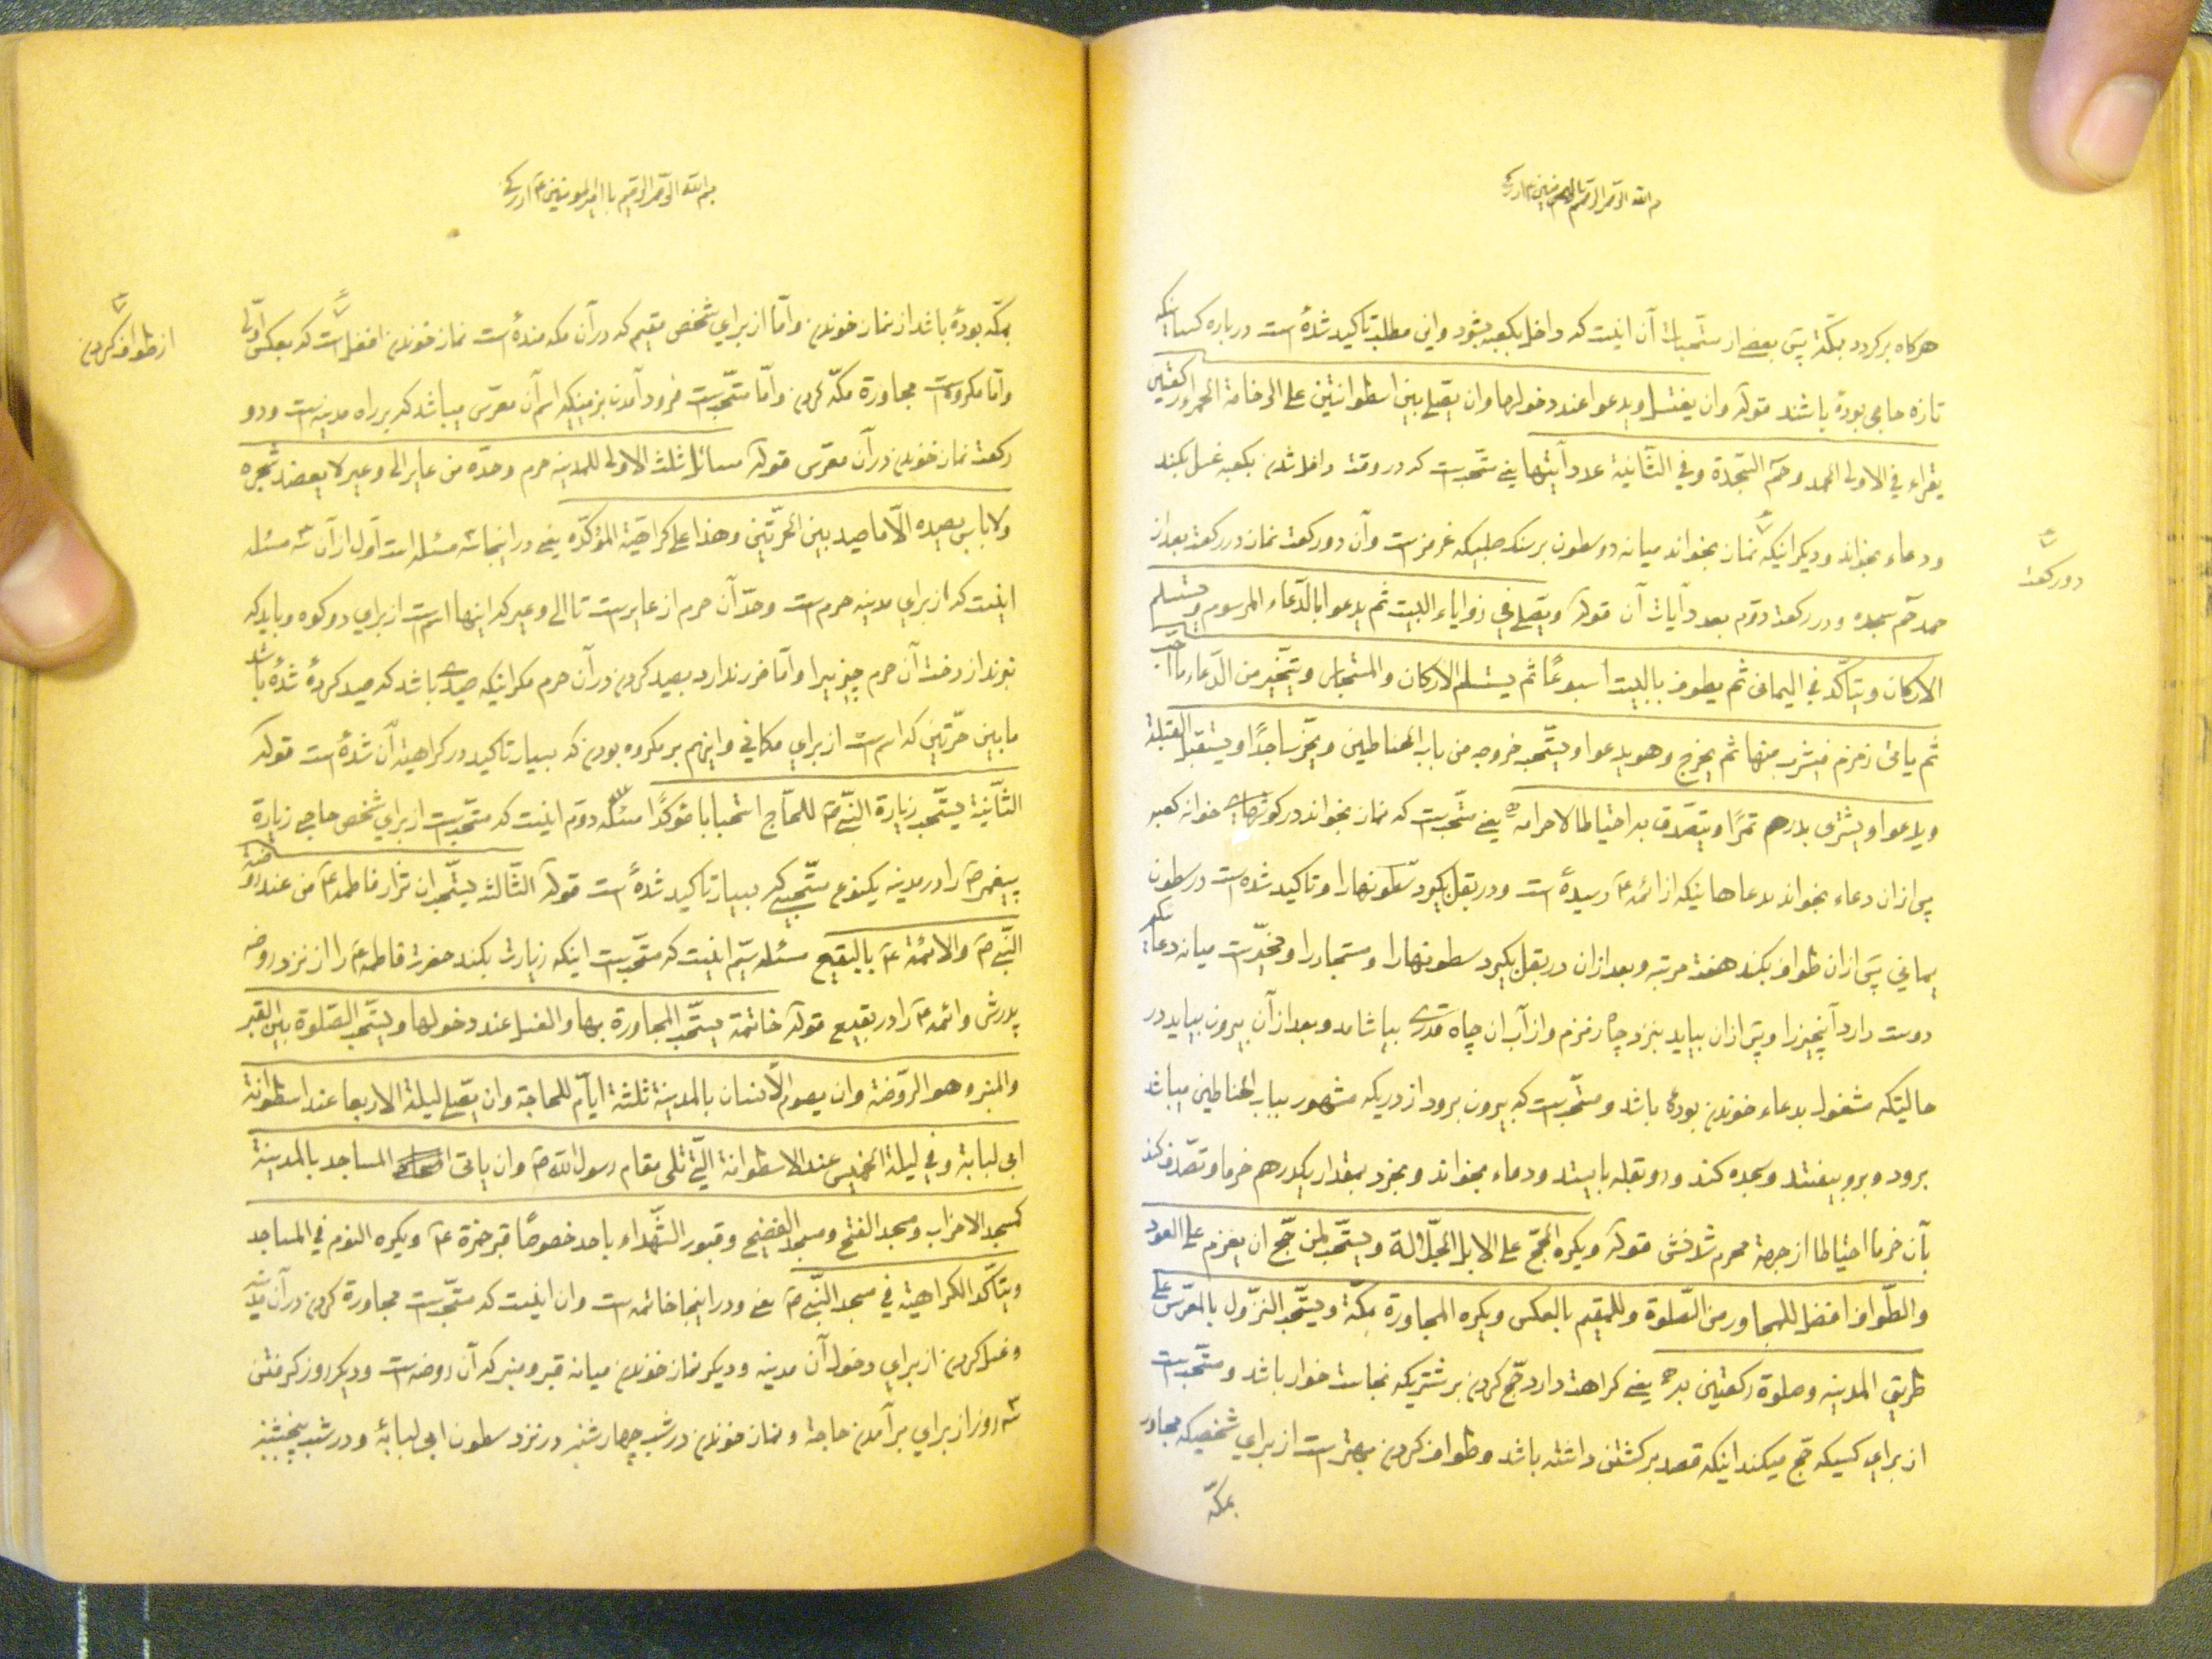 بسم الله الرحمن الرحیم یا امیرالمومنین ع ادرکنی
هرکاه برکردد بمکّة پس بعضی از مستحبات آن اینست که داخل بکعبه بشود و این مطلب تاکید شدهٔ است درباره کسانیکه
تازه حاجی بودهٔ باشند قوله وان یغتسل ویدعوا عند دخولها وان یصلی بین اسطوانتین علی الرخامة الحمرا رکعتین
یقراء فی الاولی الحمد وحم السّجدة وفی الثّانیة عدد آیتها یعنی مستحبست که در وقت داخل شدن بکعبه غسل بکند
ودعاء بخواند ودیکر اینکه نماز بخواند میانه دو سطون برسنک صلبیکه غرمزست وآن دو رکعت نماز در رکعت بعد از
دو رکعت
حمد حم سجده ودر رکعت دوّم بعدد آیات آن قوله ویصلی فی زوایاء البیت ثم یدعوا بالدّعاء المرسوم ویستلم
الارکان ویتاکّد فی الیمانی ثم یطوف بالبیت اسبوعًا ثم یستلم الارکان والمستجار ویتخیّر من الدّعاء ما احب
ثم یاتی زمزم فیشرب منها ثم یخرج وهو یدعوا ویستحب خروجه من باب الحناطین ویخرّ ساجدًا ویستقبل القبلة
ویدعوا ویشتری بدرهم تمرًا ویتصدّق به احتیاطا لاحرامه یعنی مستحبست که نماز بخواند در کوشهای خوانه کعبه
پس از ان دعاء بخواند بدعاهائیکه از ائمه ع رسیدهٔ است ودر بقل بکیرد سطونهارا وتاکید شده است در سطون
یمانی پس از ان طواف بکند هفت مرتبه وبعد از ان در بقل بکیرد سطونهارا ومستجار را ومخیّرست میانه دعائیکه
دوست دارد آنچیز را وپس از ان بیاید بنزد چاه زمزم واز آب ان چاه قدری بیاشامد وبعد از آن بیرون بیاید در
حالتیکه مشغول بدعاء خوندن بودهٔ باشد ومستحبست که بیرون برود از دریکه مشهور بباب الحناطین میباشد
برود وبرو بیفتد وسجده کند ورو بقبله بایستد ودعاء بخواند وبخرد بمقدار یکدرهم خرما وتصدّق کند
بآن خرما احتیاطا از جهة محرم شدنش قوله ویکره الحجّ علی الابل الجلّالة ویستحبّ لمن حجّ ان یعزم علی العود
والطّواف افضل للمجاور من الصّلوة وللمقیم بالعکس ویکره المجاورة بمکّة ویستحبّ النزول بالمعرّس علی
طریق المدینه وصلوة رکعتین به یعنی کراهت دارد حجّ کردن بر شتریکه نجاست خوار باشد ومستحبست
از برای کسیکه حجّ میکند اینکه قصد برکشتن داشته باشد وطواف کردن بهترست از برای شخصیکه مجاور
بمکّة
بسم الله الرحمن الرحیم یا امیرالمومنین ع ادرکنی
بمکّه بودهٔ باشد از نماز خوندن وامّا از برای شخص مقیم که در آن مکه مندهٔ است نماز خوندن افضل است که بعکس اوّلی
از طواف کردن
وامّا مکروهست مجاورة مکّه کردن وامّا مستحبست فرود آمدن بزمینیکه اسم آن معرّس میباشد که بر راه مدینه ست ودو
رکعت نماز خوندن در آن معرّس قوله مسائل ثلث الاولی للمدینه حرم وحدّه من عایر الی وعیر لا یعضد شجره
ولا باس بصیده الّا ما صید بین الحرّتین وهذا علی کراهیّة المؤکّده یعنی در اینجا سه مسئله است اول از آن سه مسئله
اینست که از برای مدینه حرم ست وحدّ آن حرم از عایرست تا الی وعیر که اینها اسم است از برای دو کوه وباید که
نبرند از درخت آن حرم چیزیرا وامّا ضرر ندارد بصید کردن در آن حرم مکر اینکه صیدی باشد که صید کردهٔ شدهٔ باشد
ما بین حرّتین که اسم ست از برای مکانی واینهم بر مکروه بودن که بسیار تاکید در کراهیة آن شدهٔ است قوله
الثّانیة یستحبّ زیارة النّبی ص للحاّج استحبابا مؤکدًا مسئله دوّم اینست که مستحبست از برای شخص حاجی زیارة
پیغمبر ص را در مدینه یکنوع مستحبیکه بسیار تاکید شدهٔ است قوله الثّالثه یستحبّ ان تزار فاطمه ع من عند روضة
النّبی ص والائمّة ع بالبقیع مسئله سیّم اینست که مستحبست اینکه زیارت بکند حضرت فاطمه ع را از نزد روضه
پدرش وائمه ع را در بقیع قوله خاتمة یستحبّ المجاورة بها والغسل عند دخولها ویستحبّ الصّلوة بین القبر
والمنبر وهو الرّوضة وان یصوم الانسان بالمدینة ثلثة ایّام للحاجة وان یصلی لیلة الاربعا عند اسطوانة
ابی لبابة وفی لیلة الخمیس عند الاسطوانة الّتی تلی مقام رسول الله ص وان یاتی المساجد بالمدینة
کمسجد الاحزاب ومسجد الفتح ومسجد الفضیخ وقبور الشّهداء باحد خصوصًا قبر حمزة ع ویکره النوم فی المساجد
ویتاکّد الکراهیة فی مسجد النّبی ص یعنی ودر اینجا خاتمه ست وان اینست که مستحبست مجاورة کردن در آن مدینه
وغسل کردن از برای دخول آن مدینه ودیکر نماز خوندن میانه قبر ومنبر که آن روضه ست ودیکر روزه کرفتن
سه روز از برای برآمدن حاجة ونماز خوندن در شب چهارشنبه در نزد سطون ابی لبابهٔ ودر شب پنجشنبه